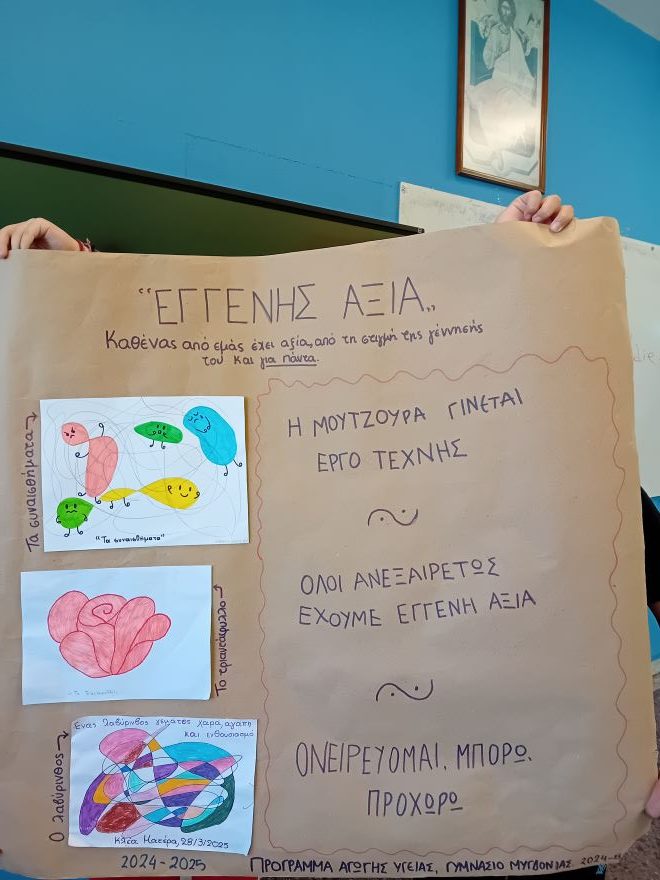 “ΕΓΓΕΝΗΣ ΑΞΙΑ„
Καθένας από εμάς έχει αξία, από τη στιγμή της γέννησής
του και για πάντα.
Τα συναισθήματα
"Τα συναισθήματα"
Η ΜΟΥΤΖΟΥΡΑ ΓΙΝΕΤΑΙ
ΕΡΓΟ ΤΕΧΝΗΣ
ΟΛΟΙ ΑΝΕΞΑΙΡΕΤΩΣ
ΕΧΟΥΜΕ ΕΓΓΕΝΗ ΑΞΙΑ
Το τριαντάφυλλο
Ο λαβύρινθος
Ένας λαβύρινθος γεμάτος χαρά, αγάπη
και ενθουσιασμό
28/3/2025
ΟΝΕΙΡΕΥΟΜΑΙ, ΜΠΟΡΩ,
ΠΡΟΧΩΡΩ
2024-2025
ΠΡΟΓΡΑΜΜΑ ΑΓΩΓΗΣ ΥΓΕΙΑΣ, ΓΥΜΝΑΣΙΟ ΜΥΓΔΟΝΙΑΣ